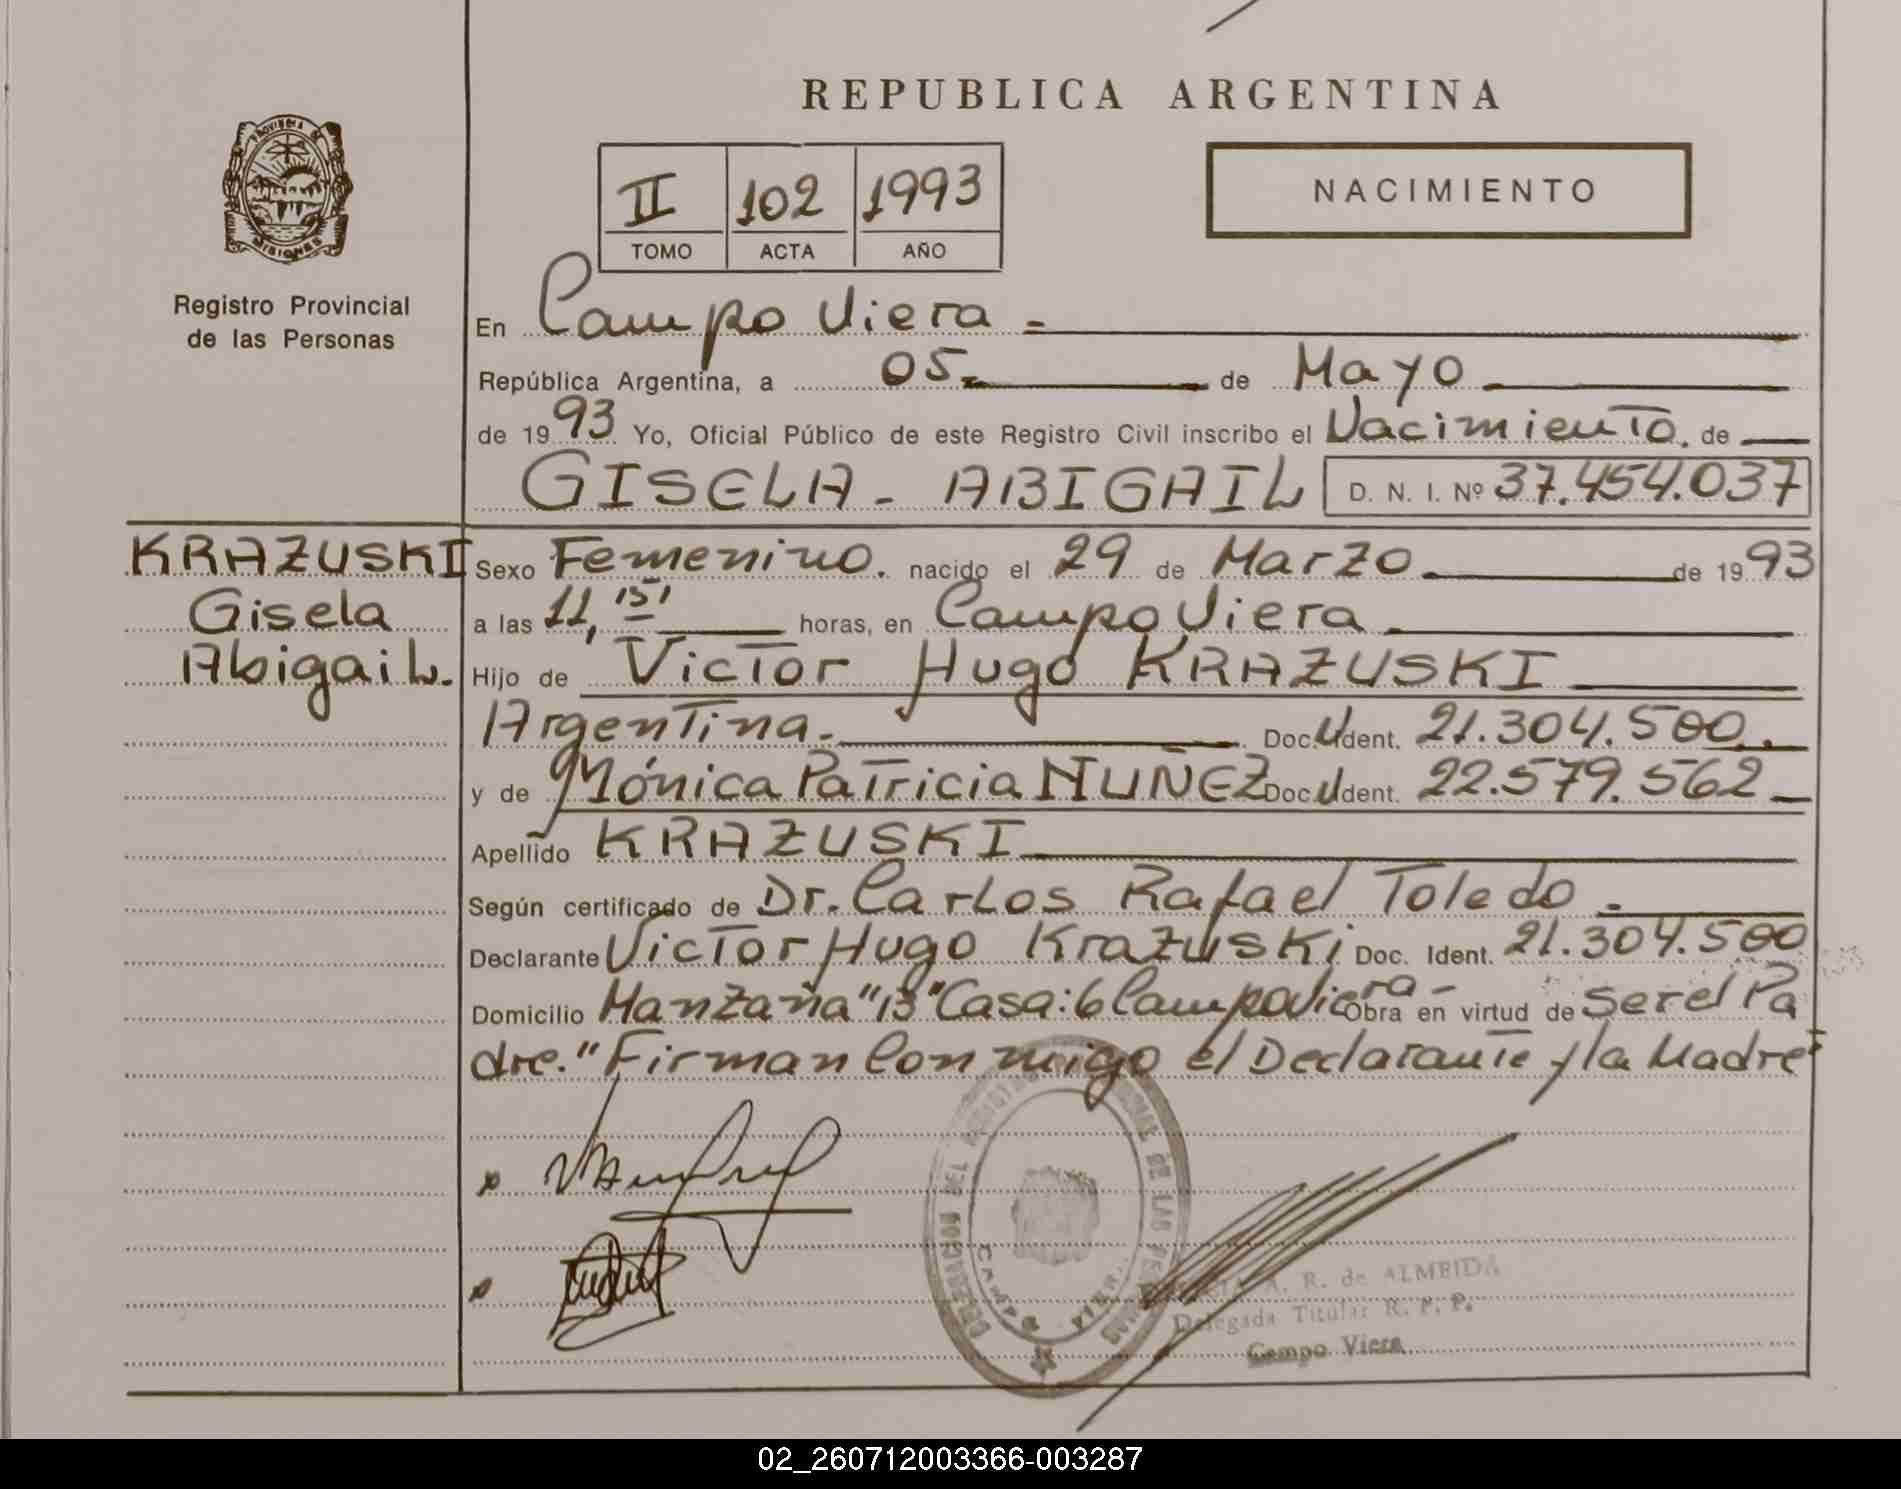 REPUBLICA ARGENTINA
PROVINCIA DE MISIONES
Registro Provincial
de las Personas
II 102 1993
TOMO ACTA AÑO
NACIMIENTO
En Campo Viera -
República Argentina, a 05 de Mayo
de 1993 Yo, Oficial Público de este Registro Civil inscribo el Nacimiento. de
GISELA - ABIGAIL D. N. I. Nº 37.454.037
KRAZUSKI
Gisela
Abigail.
Sexo Femenino. nacido el 29 de Marzo de 1993
a las 11,15' horas, en Campo Viera
Hijo de Victor Hugo KRAZUSKI
Argentina. Doc. U Ident. 21.304.500.
y de Mónica Patricia NUÑEZ Doc. U Ident. 22.579.562
Apellido KRAZUSKI
Según certificado de Dr. Carlos Rafael Toledo.
Declarante Victor Hugo Krazuski Doc. Ident. 21.304.500
Domicilio Manzana "13" Casa: 6 Campo Viera - Obra en virtud de Ser el Pa
dre." Firman Conmigo el Declarante y la Madre"
A. R. de ALMEIDA
Delegada Titular R. P. P.
Campo Viera
02_260712003366-003287